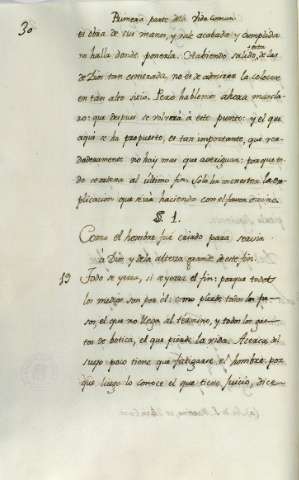 30
Primera parte de la Vida Comun
es obra de sus manos, y sale acabada y cumplida
no halla donde ponerla. Habiendo salido, esta de las
de Dios tan esmerada, no es de admirar la coloque
en tan alto sitio. Pero hablemos ahora mas claro
que despues se volverá á este punto: y el que
aqui se ha propuesto, es tan important, que ver-
daderamente no hay mas que averiguar: porque to-
do se ordena al último fin. Solo ha menester la ex-
plicacion que se irá haciendo con el favor divino.
§. 1.
Como el hombre fué criado para servir
á Dios y de la alteza grande de este fin.
19 Todo se yerra, si se yerra el fin: porque todos
los medios son por él: como pierde todos los pa-
sos, el que no llega al término, y todos los gas-
tos de botica, el que pierde la vida. Acerca del
suyo poco tiene que fatigarse el hombre por-
que luego lo conoce el que tiene juicio, dice